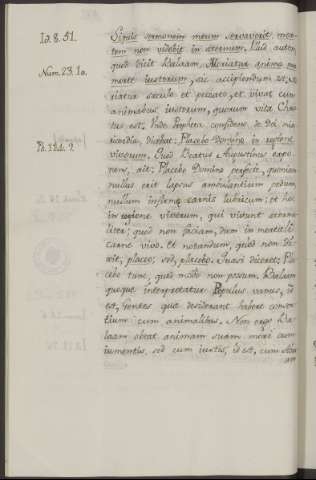 Io. 8. 51.
Siquis sermonem meum servaverit, mor-
tem non videbit in æternum. Illud autem
quod dicit Balaam, Moriatur anima mea
Num. 23. 10.
morte iustorum, sic accipiendum est, Mo-
riatur sæculo et peccato, et vivat cum
animabus iustorum, quorum vita Chris-
tus est. Unde Propheta confidens de Dei mise-
ricordia, dicebat: Placebo Domino in regione
vivorum. Quod Beatus Augustinus expo-
nens, ait: Placebo Domino perfecte, quoniam
nullus erit lapsus ambulantium pedum,
nullum infirmæ carnis lubricum; et hoc
in regione vivorum, qui vivunt æterna-
liter; quod non faciam, dum in mortali
carne vivo. Et notandum, quod non di-
xit, placeo; sed, placebo. Quasi diceret; Pla-
cebo tunc, quod modo non possum. Balaam
quoque interpretatur Populus vanus, id
est, gentes quæ desiderant habere consor-
tium cum animalibus. Non ergo Ba-
laam optat animam suam mori cum
iumentis, sed cum iustis, id est, cum